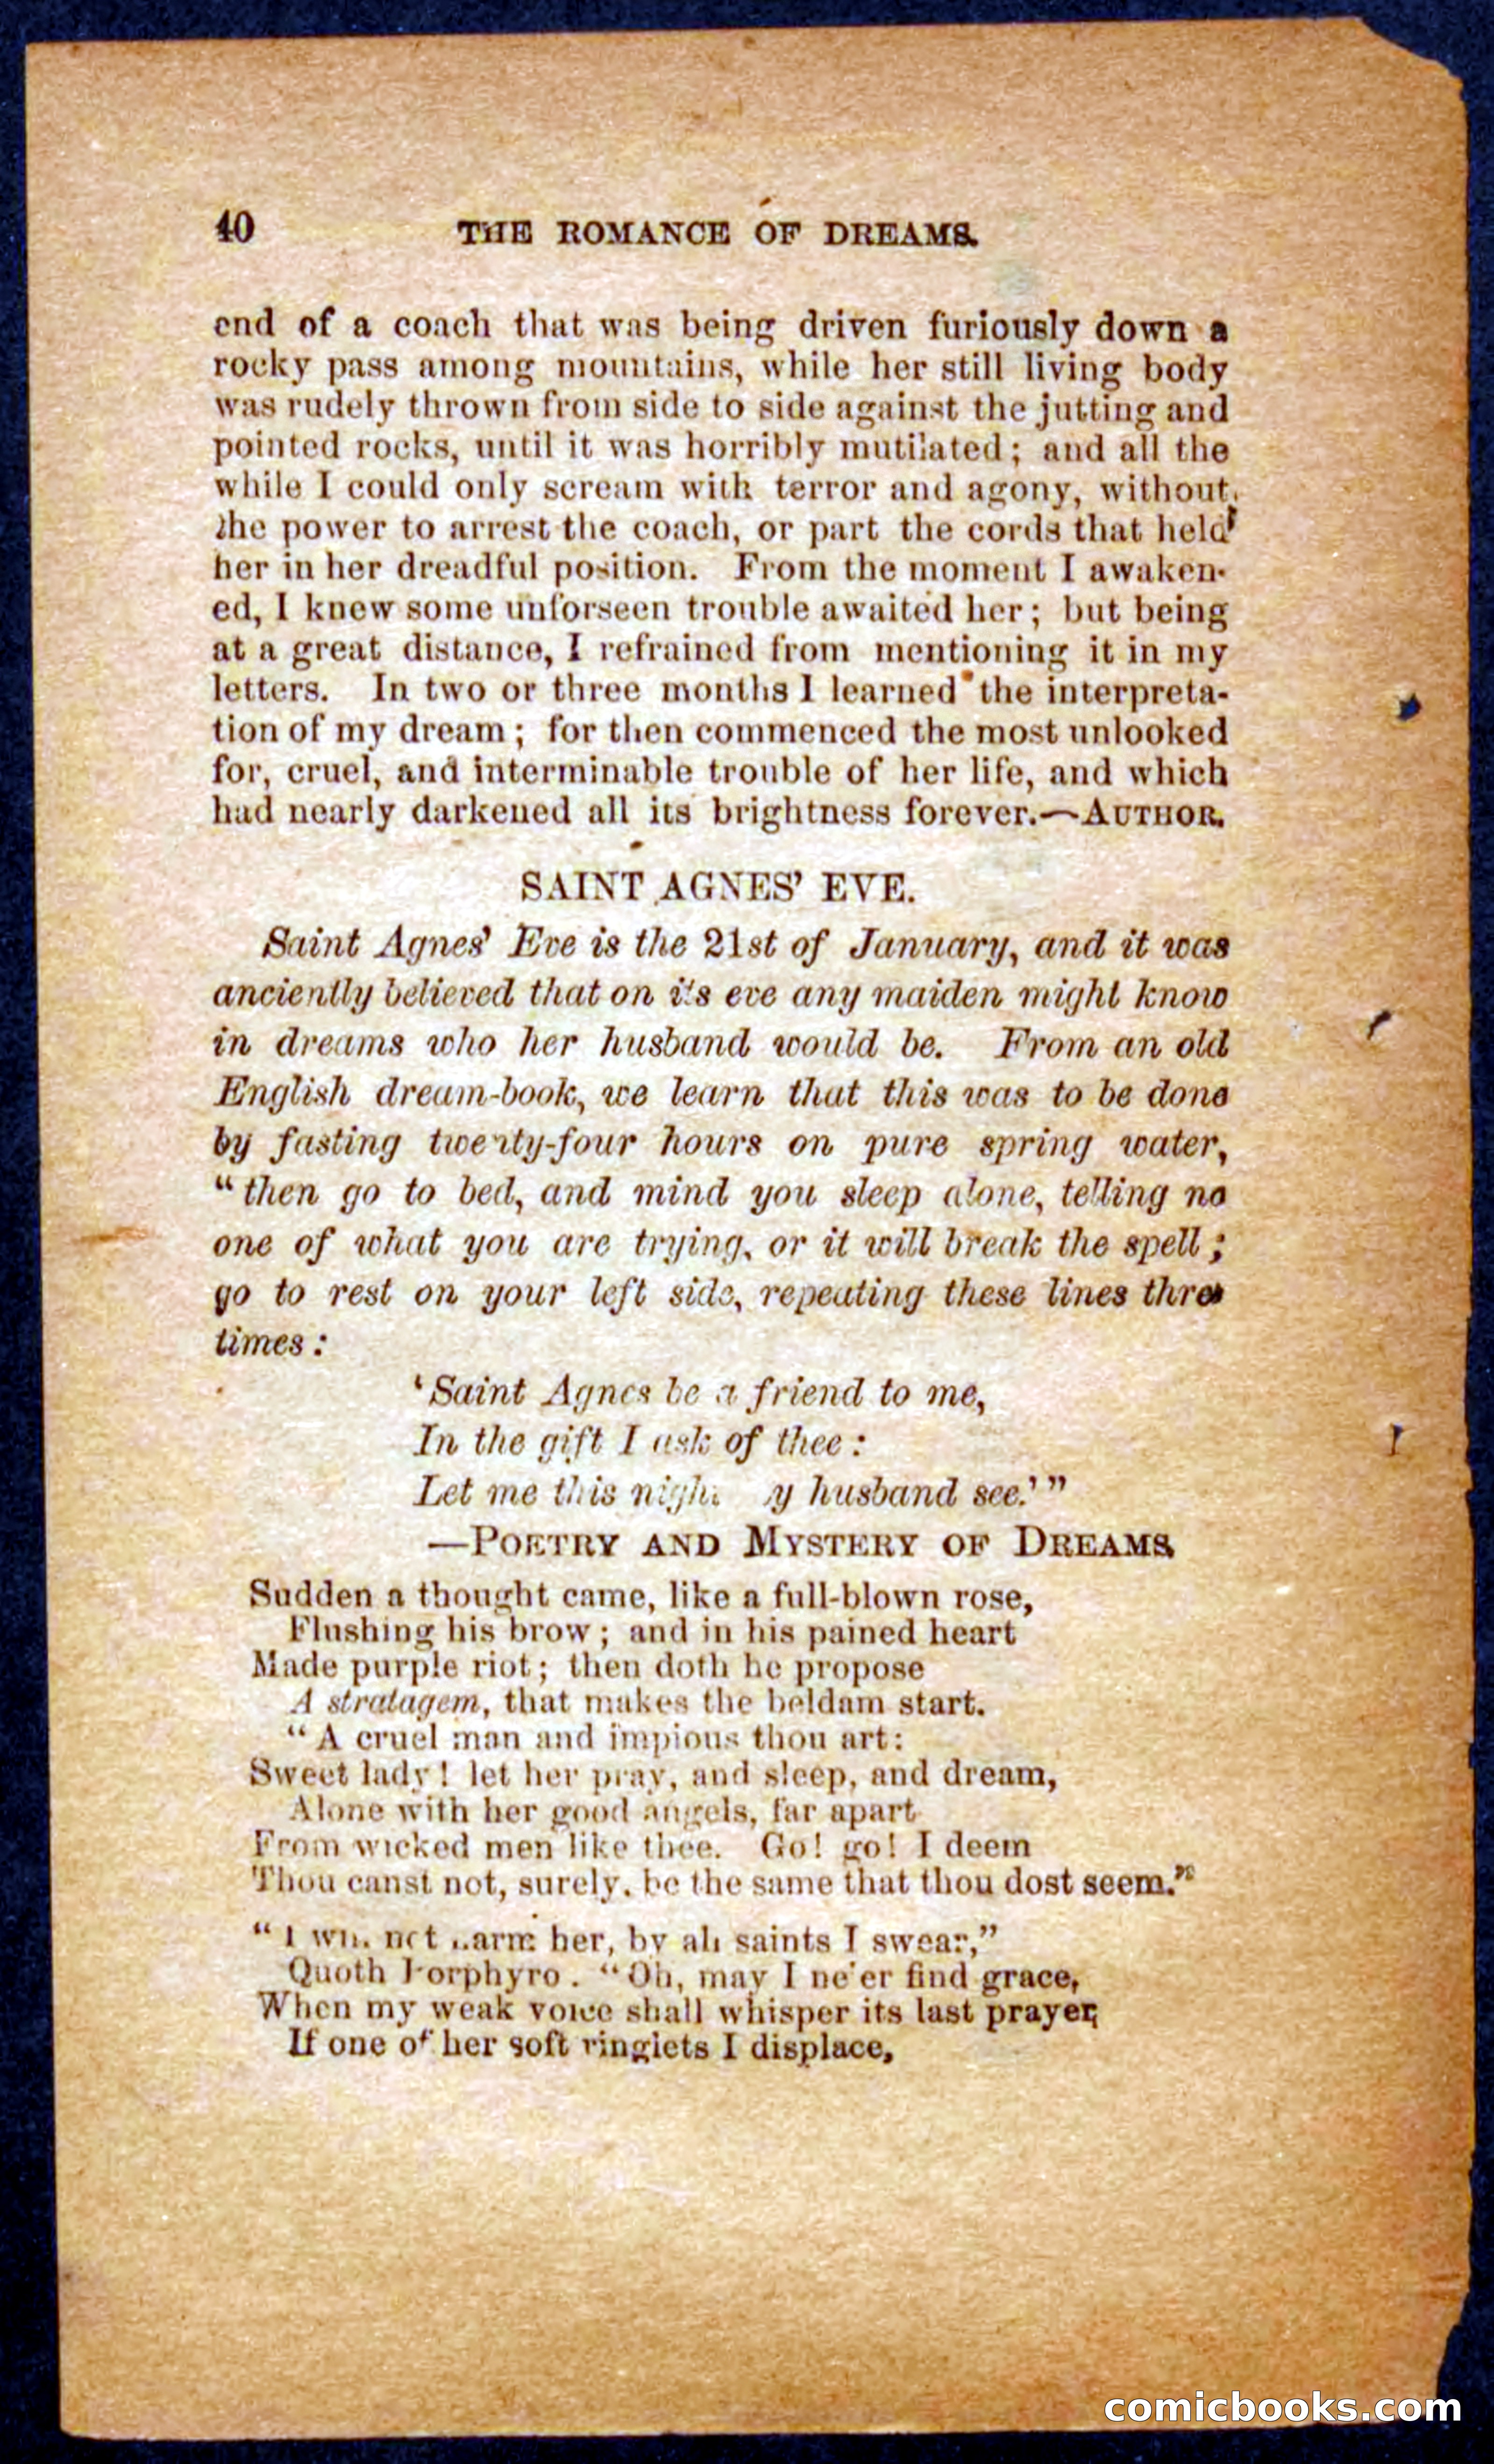 40 THE ROMANCE OF DREAMS.
end of a coach that was being driven furiously down a
rocky pass among mountains, while her still living body
was rudely thrown from side to side against the jutting and
pointed rocks, until it was horribly mutilated; and all the
while I could only scream with terror and agony, without
the power to arrest the coach, or part the cords that held
her in her dreadful position. From the moment I awaken-
ed, I knew some unforseen trouble awaited her; but being
at a great distance, I refrained from mentioning it in my
letters. In two or three months I learned the interpreta-
tion of my dream; for then commenced the most unlooked
for, cruel, and interminable trouble of her life, and which
had nearly darkened all its brightness forever.—AUTHOR.
SAINT AGNES' EVE.
Saint Agnes' Eve is the 21st of January, and it was
anciently believed that on its eve any maiden might know
in dreams who her husband would be. From an old
English dream-book, we learn that this was to be done
by fasting twenty-four hours on pure spring water,
"then go to bed, and mind you sleep alone, telling no
one of what you are trying, or it will break the spell;
go to rest on your left side, repeating these lines three
times:
'Saint Agnes be a friend to me,
In the gift I ask of thee:
Let me this night husband see.'"
—POETRY AND MYSTERY OF DREAMS.
Sudden a thought came, like a full-blown rose,
Flushing his brow; and in his pained heart
Made purple riot; then doth he propose
A stratagem, that makes the beldam start.
"A cruel man and impious thou art:
Sweet lady! let her pray, and sleep, and dream,
Alone with her good angels, far apart
From wicked men like thee. Go! go! I deem
Thou canst not, surely, be the same that thou dost seem."
"I will not harm her, by all saints I swear,"
Quoth Porphyro. "Oh, may I ne'er find grace,
When my weak voice shall whisper its last prayer,
If one of her soft ringlets I displace,
comicbooks.com